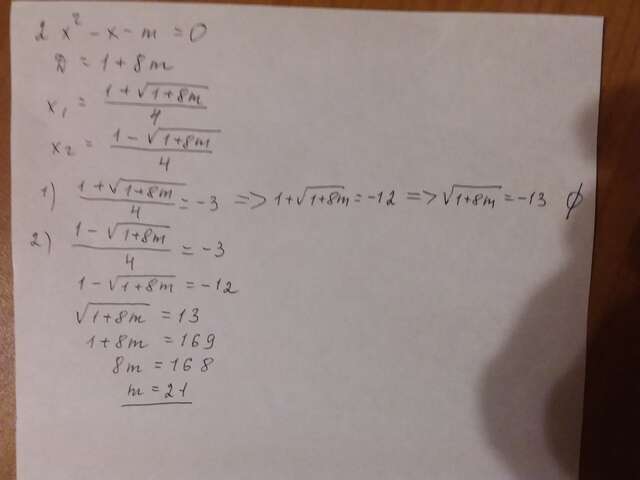 2x² - x - m = 0
D = 1 + 8m
x₁ = (1 + √(1+8m))/4
x₂ = (1 - √(1+8m))/4
1) (1 + √(1+8m))/4 = -3 => 1 + √(1+8m) = -12 => √(1+8m) = -13 ∅
2) (1 - √(1+8m))/4 = -3
1 - √(1+8m) = -12
√(1+8m) = 13
1 + 8m = 169
8m = 168
m = 21